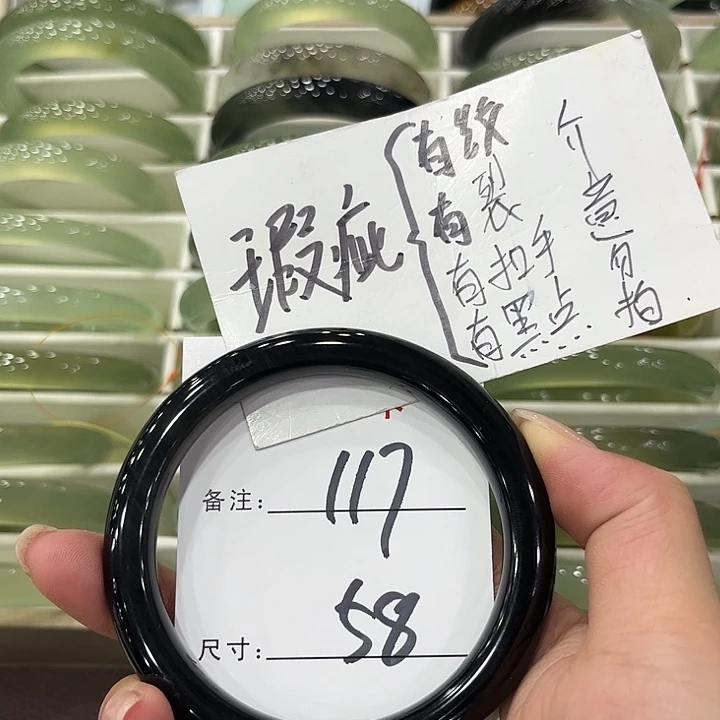 瑕疵
有纹
有裂
有扣手
有黑点
介意勿拍
备注: 117
尺寸: 58